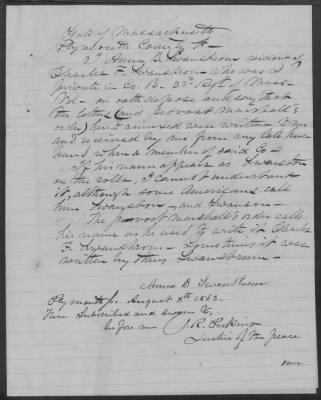 State of Massachusetts
Plymouth County ss.
I Anna B. Swanstrom widow of
Charles F. Swanstrom who was a
private in Co. B. 23d Regt of Mass.
Vol. on oath depose and say that
the letters (and Provost Marshall's
order) here annexed were written to me
and received by me from my late hus
band when a member of said Co.-
If his name appears as Swanston
on the rolls, I cannot understand
it, although some Americans call
him Swanston, and Swanson.-
The provost Marshall's order calls
his name as he used to write it Charles
F. Swanstrom - Sometimes it was
written by them Swanstrum -
Anna B. Swanstrom
Plymouth ss. August 8th 1863.
Then Subscribed and sworn to,
before me
Justice of the peace
over